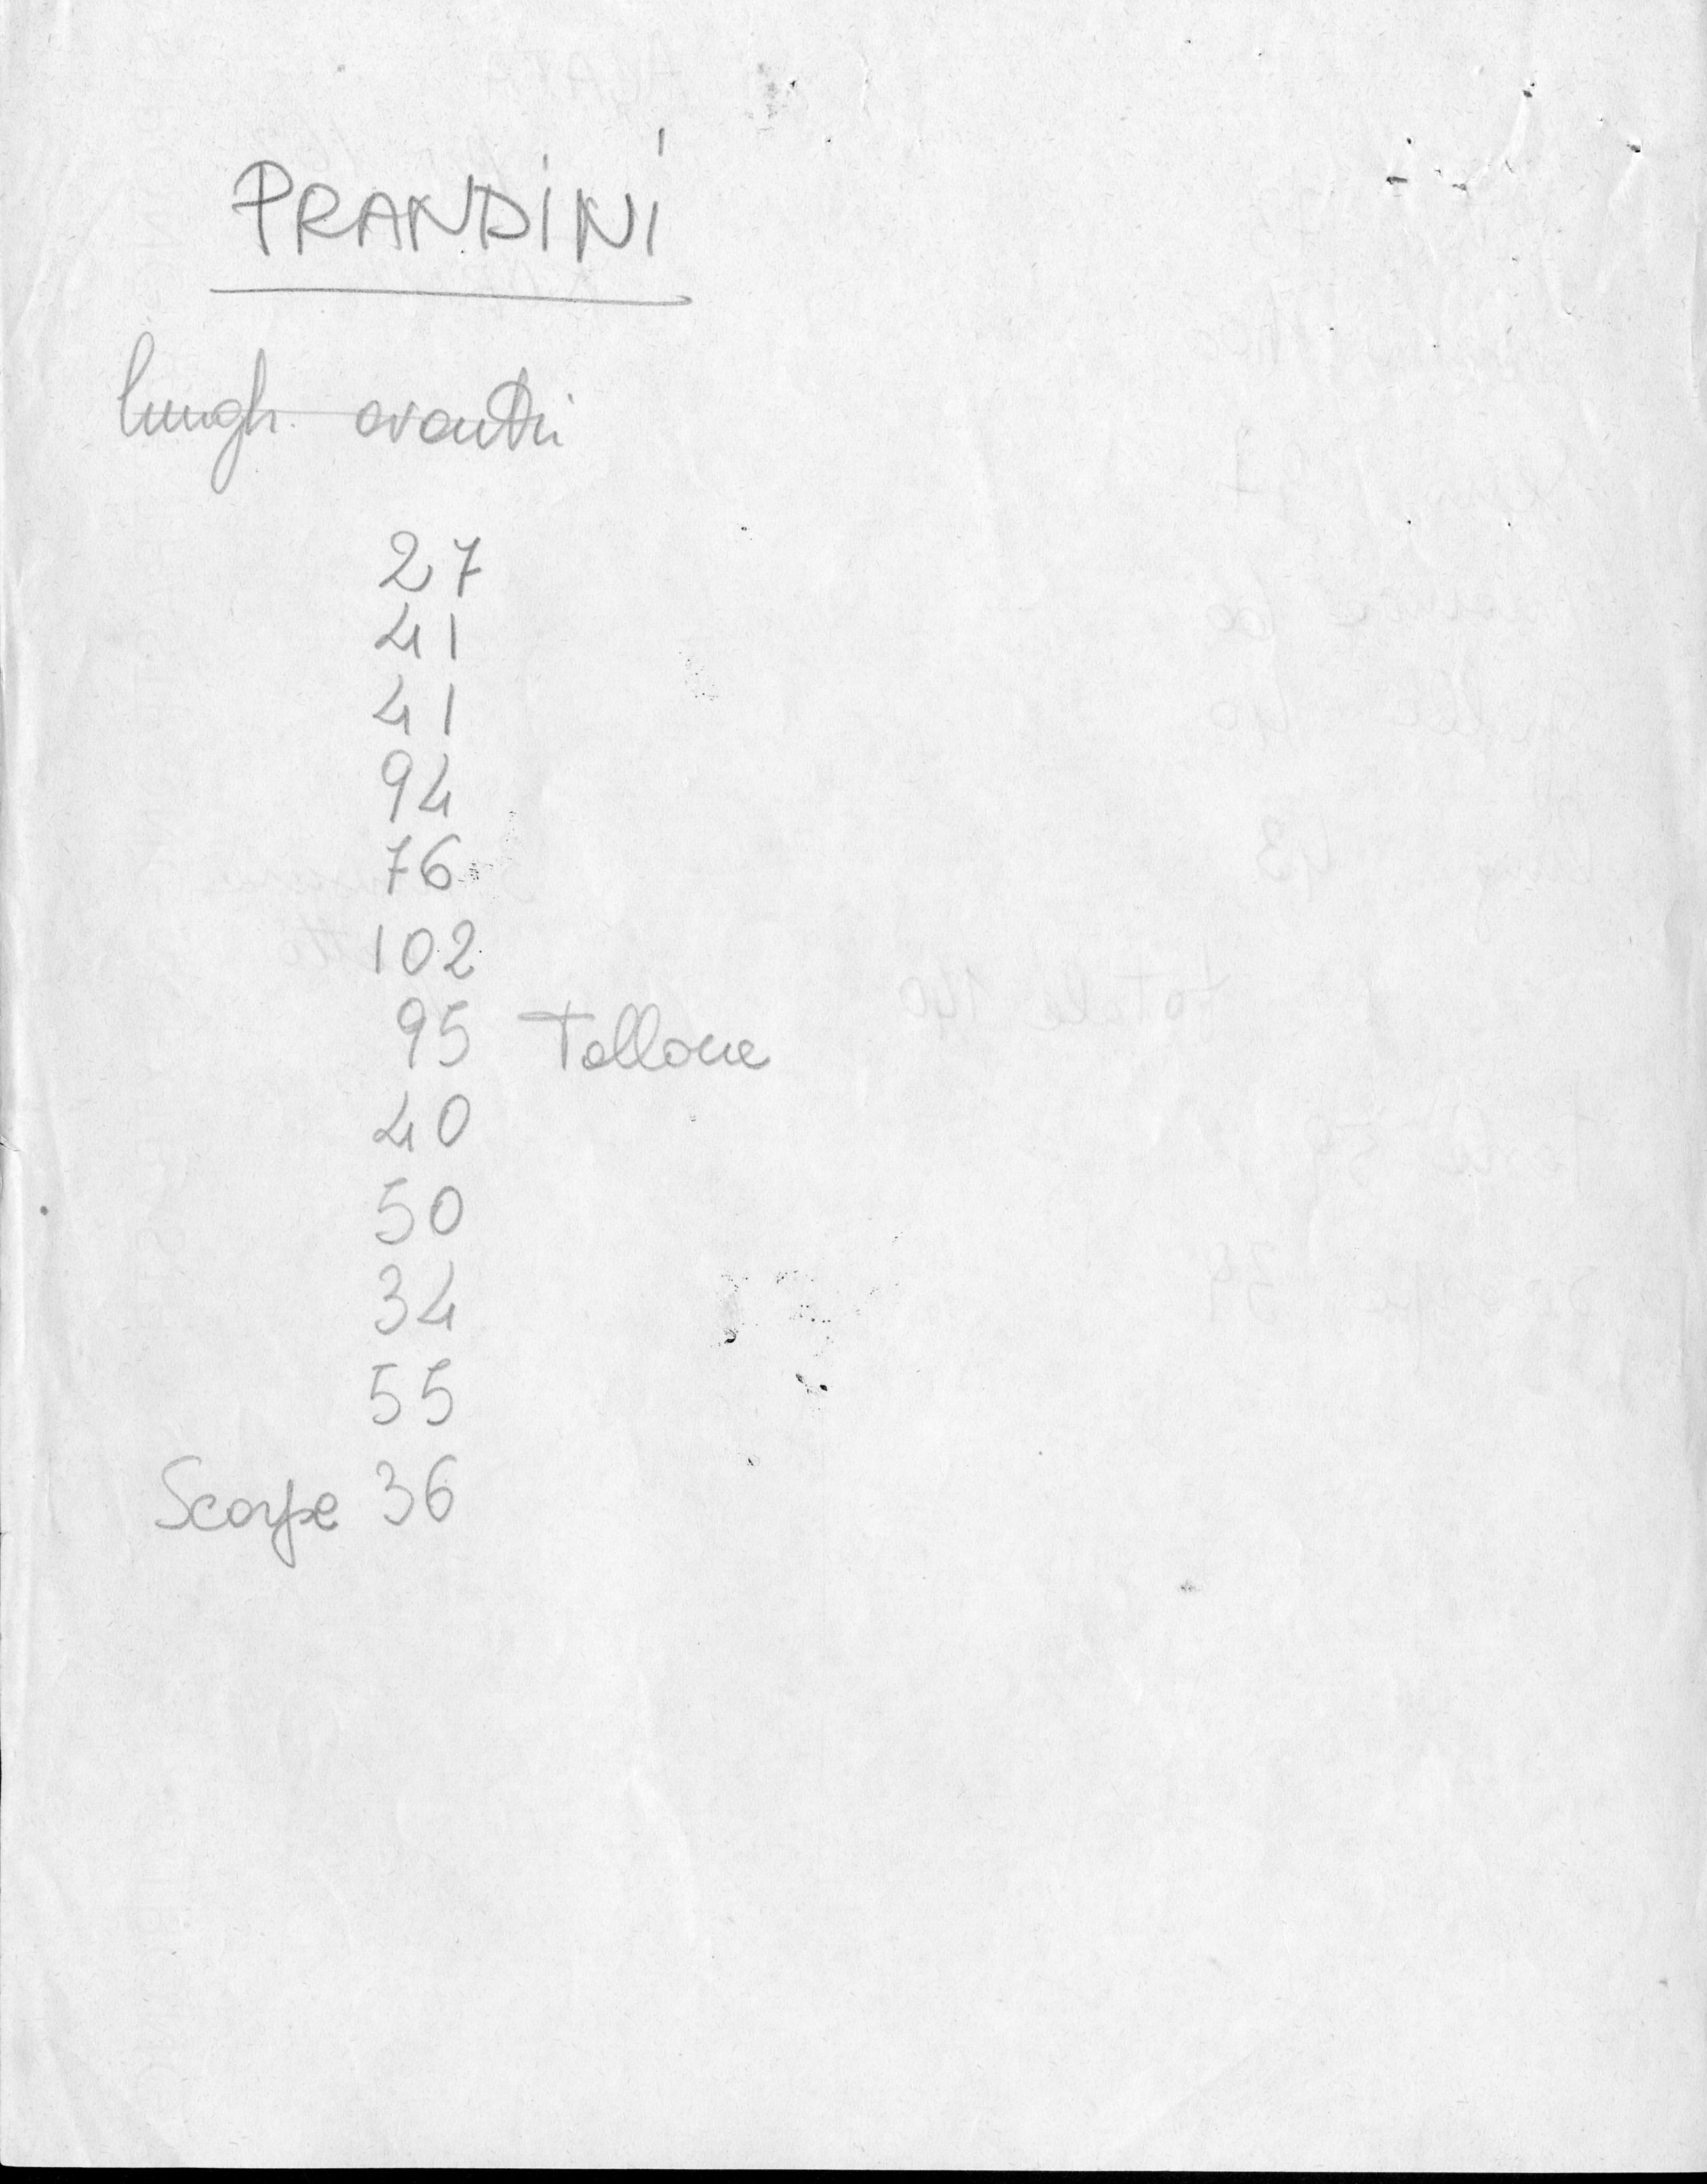 PRANDINI
lungh. avanti
27
41
41
94
76
102
95 Tallone
40
50
34
55
Scarpe 36